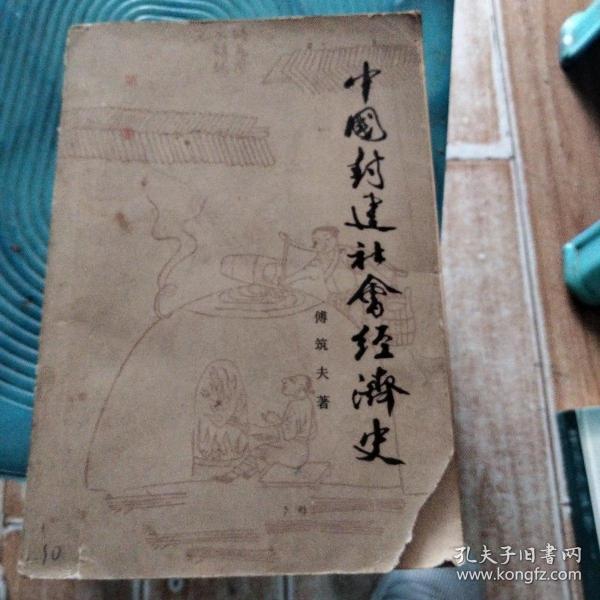 中國封建社會经濟史
傅筑夫著
第
50
孔夫子旧书网
www.kongfz.com